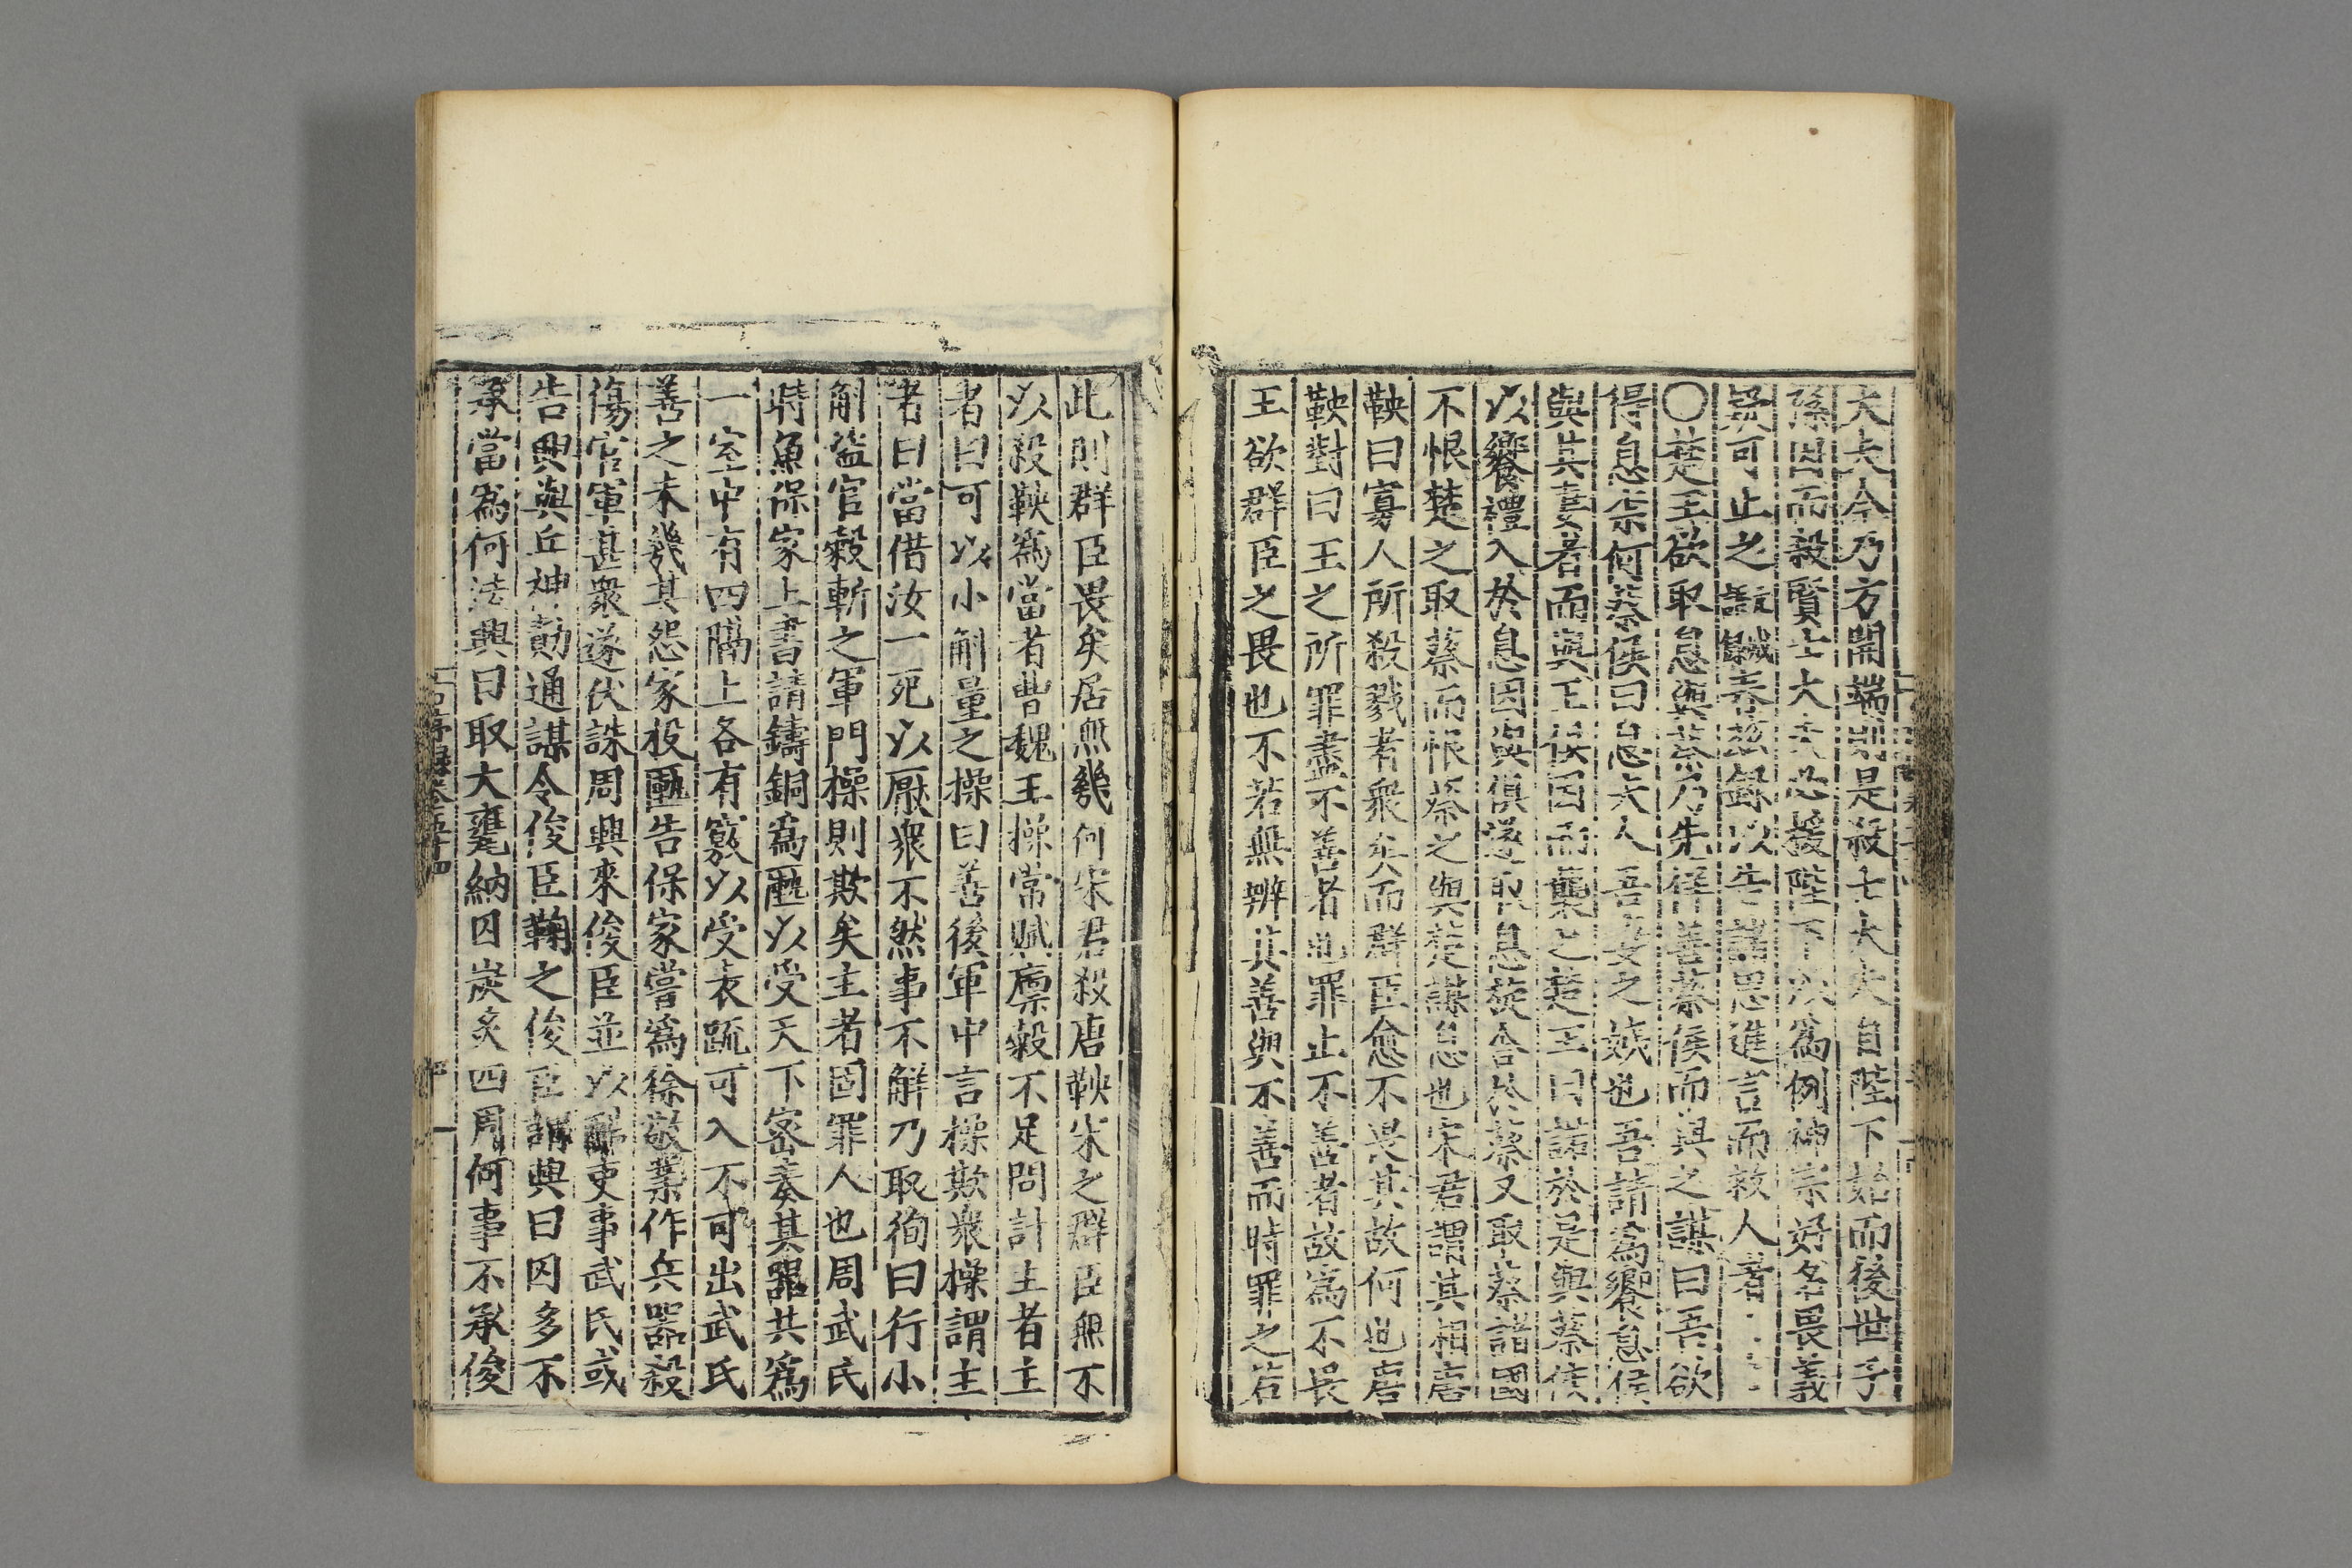 大夫今乃方開端則是殺士大夫自陛下始而後世子
孫因而殺賢士大夫恐援陛下以為例神宗好名畏義
疑可止之故鱥舂茲錄以告謀思進言而救人者
〇楚王欲取息與蔡乃先佯善蔡侯而與之謀曰吾欲
得息柰何蔡侯曰息夫人吾妻之娣也吾請為饗息侯
與其妻者而與王俱因而襲之楚王曰諾於是與蔡侯
以饗禮入於息因與俱遂取息旋舍於蔡又取蔡諸國
不恨楚之取蔡而恨蔡之與楚謀息也宋君謂其相唐
鞅曰寡人所殺戮者衆矣而群臣愈不畏其故何也唐
鞅對曰王之所罪盡不善者也罪止不善者故為不畏
王欲群臣之畏也不若無辨其善與不善而時罪之若
此則群臣畏矣居無幾何宋君殺唐鞅宋之群臣無不
以殺鞅為當者曹魏王操常賦廪糓不足問計主者主
者曰可以小斛量之操曰善後軍中言操欺衆操謂主
者曰當借汝一死以厭衆不然事不解乃取徇曰行小
斛盜官糓斬之軍門操則欺矣主者固罪人也周武氏
時魚保家上書請鑄銅為匭以受天下密奏其器共為
一室中有四隔上各有竅以受表䟽可入不可出武氏
善之未幾其怨家投匭告保家嘗為徐敬業作兵器殺
傷官軍甚衆遂伏誅周興來俊臣並以酷吏事武氏或
告興與丘神勣通謀令俊臣鞫之俊臣謂興曰囚多不
承當為何法興曰取大甕納囚炭炙四周何事不承俊